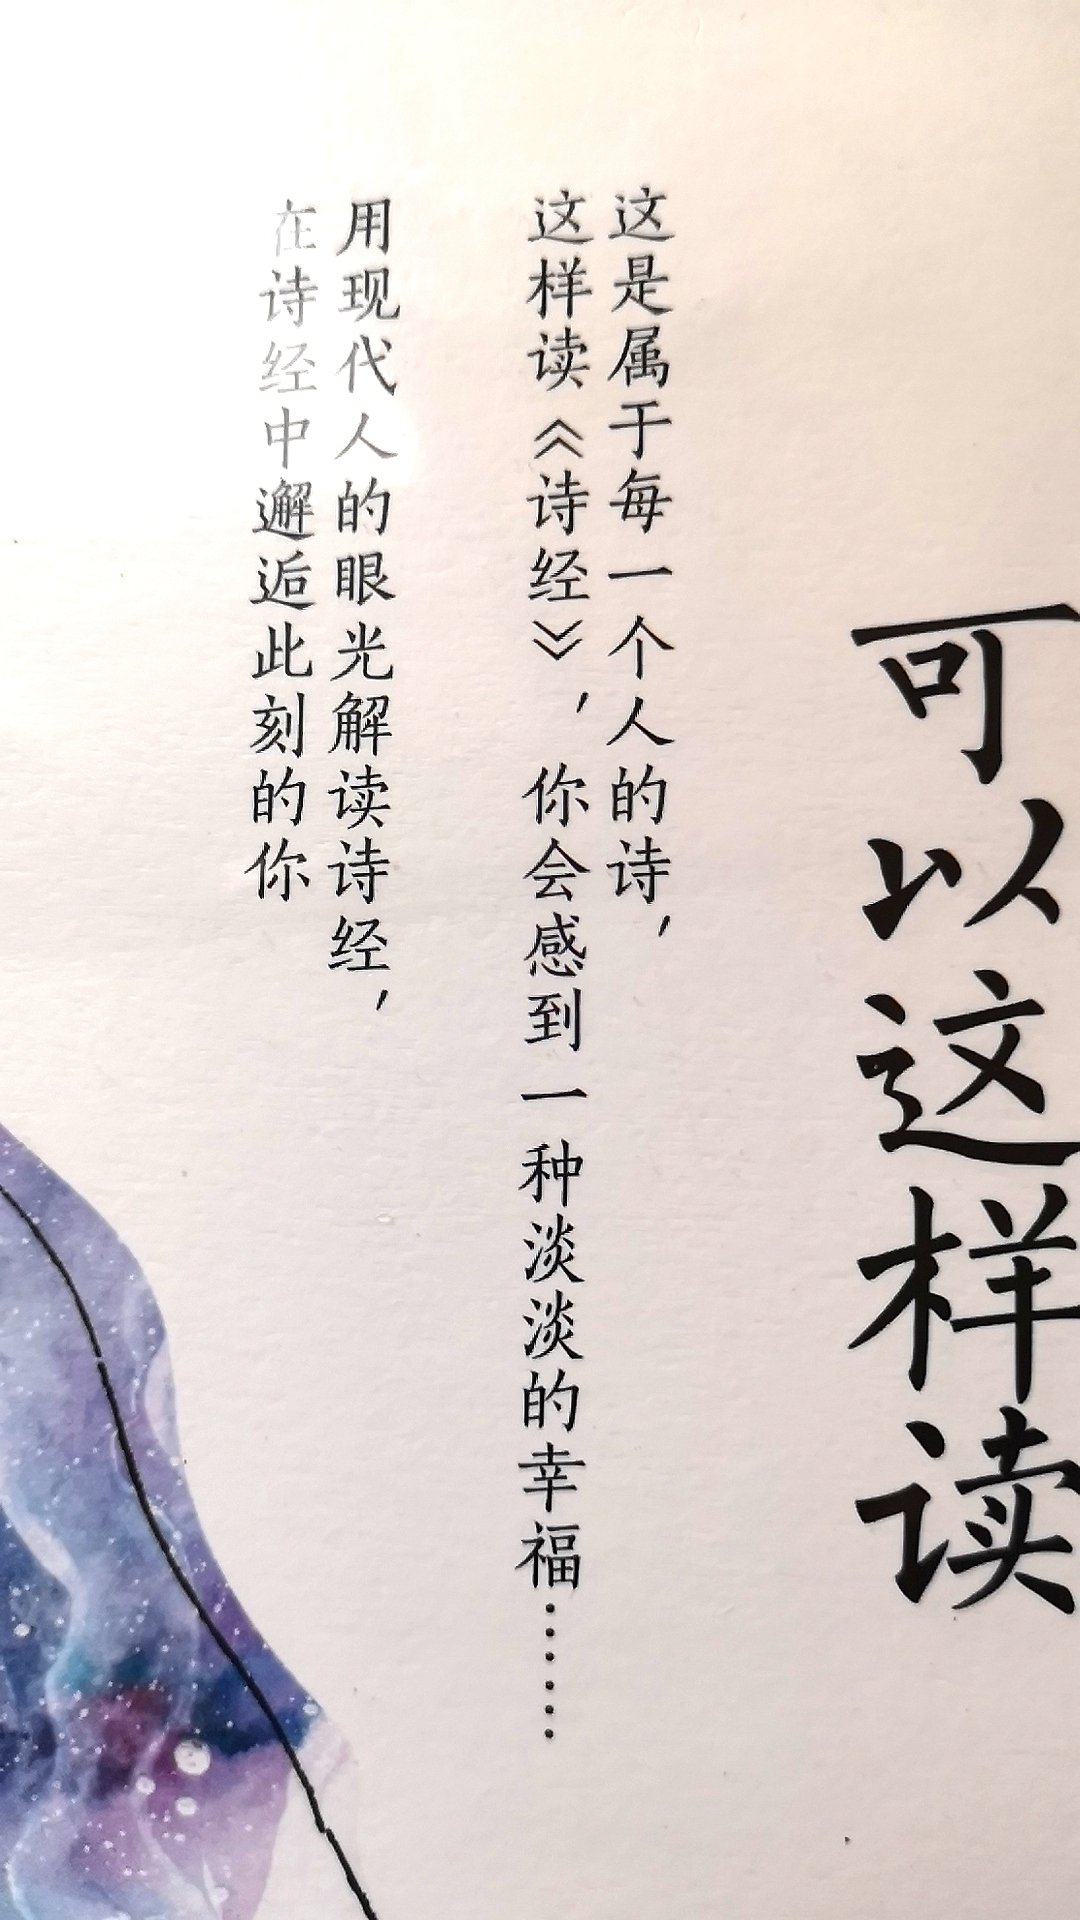 可以这样读
这是属于每一个人的诗，
这样读《诗经》，你会感到一种淡淡的幸福……
用现代人的眼光解读诗经，
在诗经中邂逅此刻的你